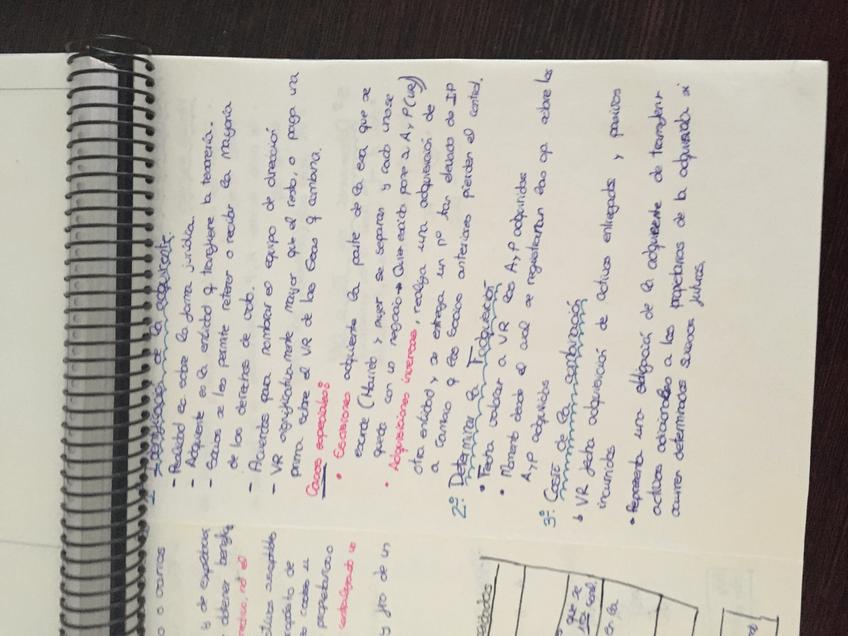 1º Identificación de la adquirente.
- Realidad ec sobre la forma jurídica.
- Adquirente es la entidad q transfiere la tesorería.
- Socios se les permite retener o recibir la mayoría
de los derechos de voto.
- Acuerdos para nombrar el equipo de dirección
- VR significativamente mayor que el resto, o paga una
prima sobre el VR de las Ecas q combina.
Casos especiales:
• Escisiones adquirente la parte de la esa que se
escinde (Marido y mujer se separan y cada uno se
queda con un negocio → Quien escindo pone a A y P (VR)
• Adquisiciones inversas, realiza una adquisición de
otra entidad y se entrega un nº tan elevado de IP
a cambio q los socios anteriores pierden el control.
2º Determinar la F adquisición
• Fecha valorar a VR los A y P adquiridos
• Momento desde el cual se registrarán las op sobre los
A y P adquiridos
3º Coste de la combinación
VR fecha adquisición de activos entregados y pasivos
incurridos
• Representa una obligación de la adquirente de transferir
activos adicionales a los propietarios de la adquirida si
ocurren determinados sucesos futuros.
o o varios
y de
obtener
no el
propósito de
propietario o
y
de un
que se
en la